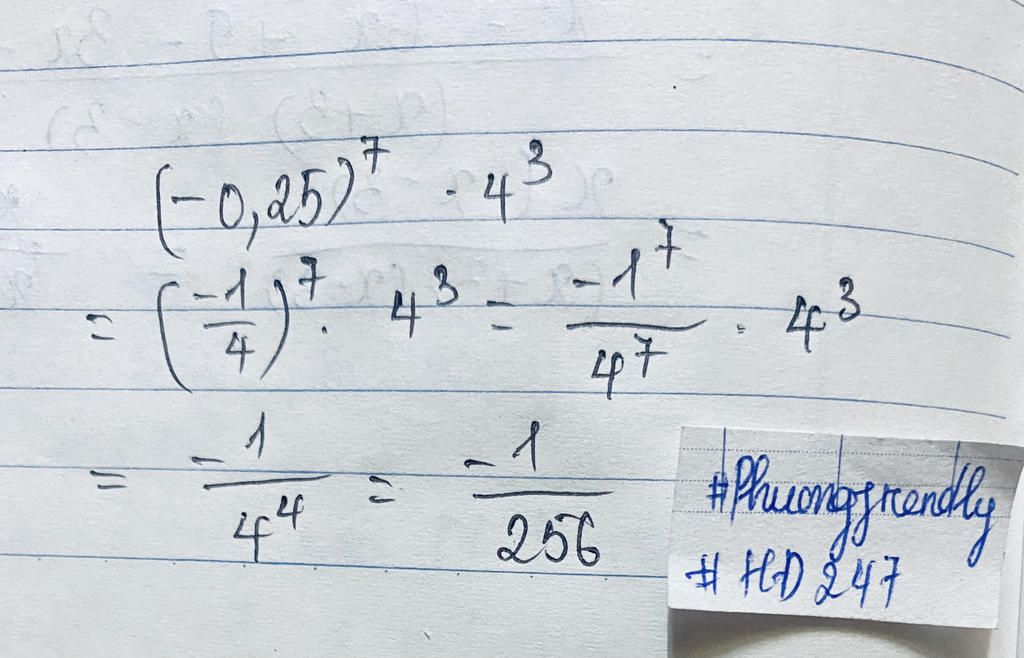 (-0,25)^7 · 4^3
= (-1/4)^7 · 4^3 = -1^7/4^7 · 4^3
= -1/4^4 = -1/256
#Phuongfrendly
# HD 247